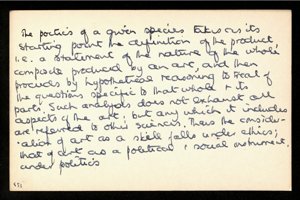 The poetics of a given species takes as its
starting point the definition of the product
i.e. a statement of the nature of the whole
composite produced by an art, and then
proceeds by hypothetical reasoning to treat of
the questions specific to that whole & its
parts. Such analysis does not exhaust all
aspects of the art; but any which it includes
are referred to other sciences. Thus the consider-
ation of art as a skill falls under ethics;
that of art as a political & social instrument,
under politics